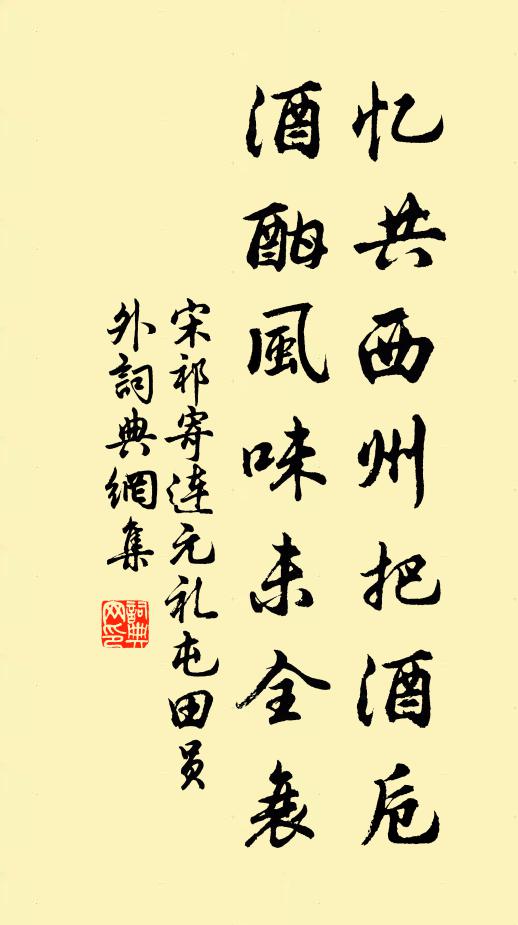 忆共西州把酒卮
酒酣風味未全衰
宋祁寄连元礼屯田员
外詞典網集
詞典
网印